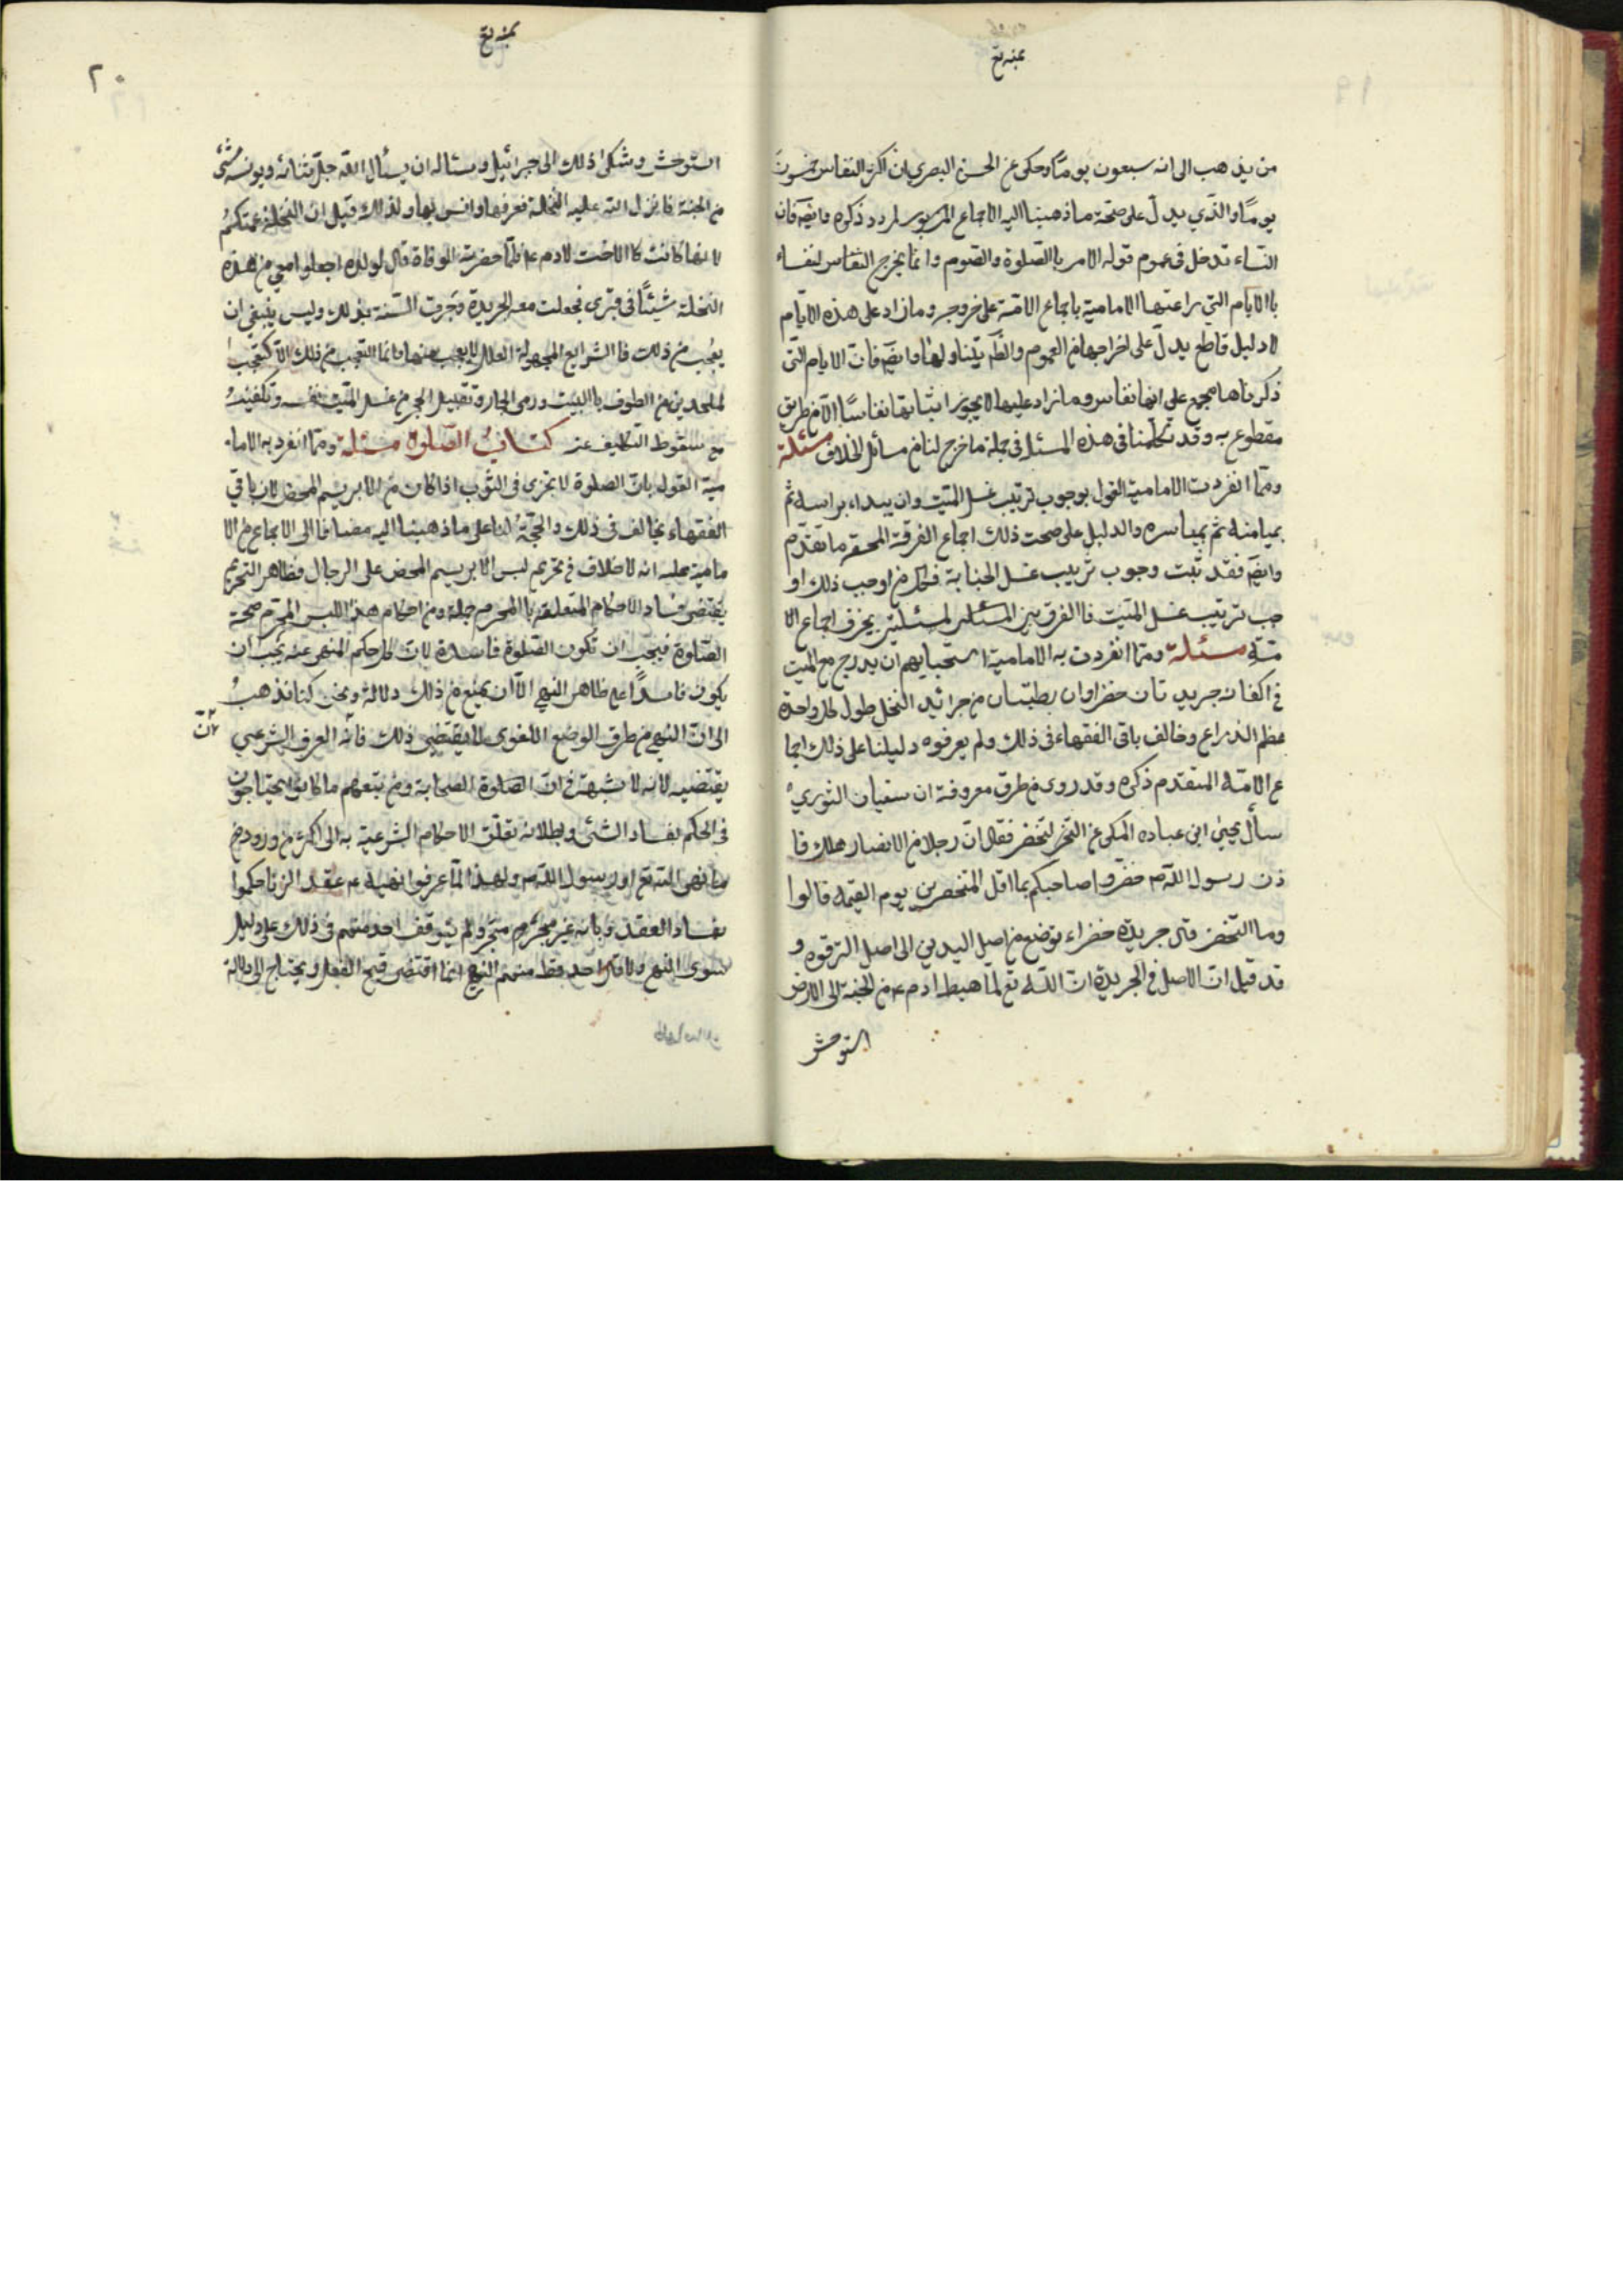 من يذهب الى انه سبعون يومًا وحكى عن الحسن البصرى ان اكثر النفاس خمسون
يومًا والذي يدل على صحة ما ذهبنا اليه الاجماع ذكره وايضَ فان
النساء تدخل في عموم قوله الامر باالصلوة والصوم وانما يخرج النفاس لنفساء
باالايام التي راعتها الامامية باجماع الامة على خروجه وما زاد على هذه الايام
لا دليل قاطع يدل على اخراجها من العموم والظَم يتناولها وايضَ فان الايام التى
ذكرناها مجمع على انها نفاس وما زاد عليها لا يجوز اثباتها نفاسًا الا من طريق
مقطوع به وقد تكلمنا في هذه المسئلة في جملة ما خرج لنا من مسائل الخلاف مسئلة
ومما انفردت الامامية القول بوجوب ترتيب غسل الميت وان يبداء براسه ثم
بميامنه ثم بمياسره والدليل على صحت ذلك اجماع الفرقة المحقه ما تقدم
وايضَ فقد ثبت وجوب ترتيب غسل الجنابة فكل من اوجب ذلك او
جب ترتيب غسل الميت فاالفرق بين المسئلتين يخرف اجماع الا
مة مسئلة ومما انفردت به الامامية استحبابهم ان يدرج مع الميت
في اكفانه جريدتان خضراوان رطبتان من جرائد النخل طول كل واحدة
عظم الذراع وخالف باقى الفقهاء في ذلك ولم يعرفوه دليلنا على ذلك اجما
ع الامة المتقدم ذكره وقد روى من طرق معروفة ان سفيان الثوري
سأل يحيى ابن عباده المكى عن التخضر فقال ان رجلا من الانصار هلك فا
ذن رسول الله ص خضروا صاحبكم بما اقل المتخضرين يوم القيمه قالوا
وما التخضر قال جريدة خضراء توضع من اصل اليدين الى اصل الترقوه و
قد قيل ان الاصل في الجريدة ان الله تع لما هبط ادم ع من الجنة الى الارض
استوحش
٢٠
استوحش وشكى ذلك الى جبرائيل وسئاله ان يسأل الله جل ثنائه ويونسه شئ
من الجنة فانزل الله عليه النخلة فعرفها وانس بها ولذلك قيل ان النخلة عمتكم
لانها كانت كاالاخت لادم ع فلما حضرته الوفاة قال لولده اجعلوا معي من هذه
النخلة شيئًا في قبرى فجعلت معه الجريدة وجرت السنة بذلك وليس ينبغي ان
يعجب من ذلك فاالشرايع المجهولة العلل لا يعجب منها وانما التعجب من ذلك الا كتعجب
لملحدين من الطوف باالبيت ورمى الجار وتقبيل الحجر من غسل الميت نفسه وتكفينه
مع سقوط التكليف عنه كتاب الصلوة مسئلة ومما انفرد به الاما
مية القول بان الصلوة لا تجزى في الثوب اذا كان من الابريسم المحض لان باقي
الفقهاء يخالف في ذلك والحجة لنا على ما ذهبنا اليه مضافا الى الاجماع من الا
مامية عليه انه لا خلاف في تحريم لبس الابريسم المحض على الرجال فظاهر التحريم
يقتضى فساد الاحكام المتعلقه باالمحرم جملة ومن احكام هذا اللبس المحرم صحة
الصلوة فيجب ان تكون الصلوة فاسدة لان كل حكم المنهى عنه يجب ان
يكون فاسدًا على ظاهر النهي الا ان يمنع من ذلك دلالة ونحن كنا نذهب
الى ان النهي من طرق الوضع اللغوى لا يقتضي ذلك فانه العرف الشرعي
يقتضيه لانه لا شبهة في ان الصلوة الصحابة ومن تبعهم ما كانوا يحتاجون
في الحكم بفساد الشئ وبطلانه تعلق الاحكام الشرعية به الى اكثر من ورود
ما نهى الله تع او رسول الله ص ولهذا لما عرفوا نهيه ع عقد الربا حكموا
بفساد العقد وبانه غير مجزى ولم يتوقف احد منهم في ذلك على دليل
سوى النهي ولا قال احد قط منهم النهي انما اقتضى قبح الفعل ويحتاج الى دلالة